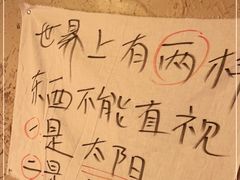 世界上有两样
东西不能直视
一是太阳
二是